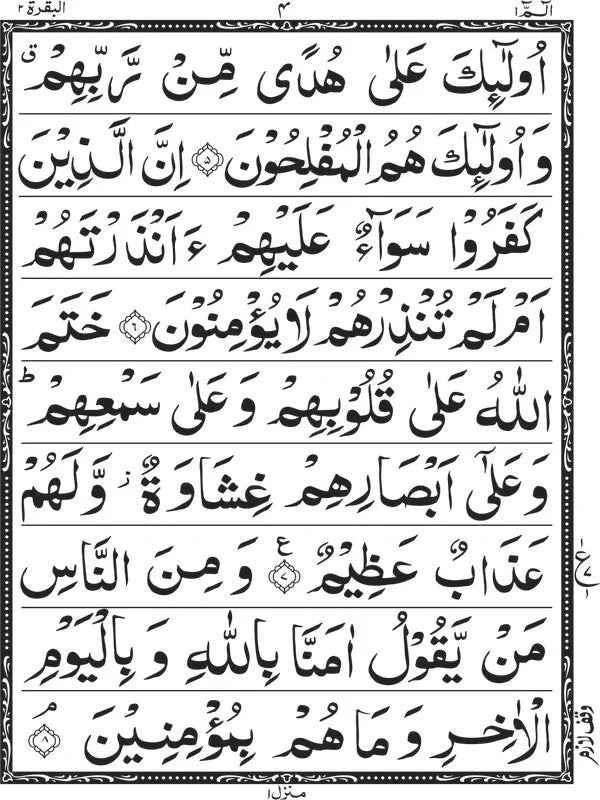 الٓمّٓ ١ ٤ البقرة ٢
اُولٰٓئِكَ عَلٰى هُدًى مِّنْ رَّبِّهِمْ ق
وَ اُولٰٓئِكَ هُمُ الْمُفْلِحُوْنَ ٥ اِنَّ الَّذِيْنَ
كَفَرُوْا سَوَآءٌ عَلَيْهِمْ ءَاَنْذَرْتَهُمْ
اَمْ لَمْ تُنْذِرْهُمْ لَا يُؤْمِنُوْنَ ٦ خَتَمَ
اللّٰهُ عَلٰى قُلُوْبِهِمْ وَ عَلٰى سَمْعِهِمْ ط
وَ عَلٰٓى اَبْصَارِهِمْ غِشَاوَةٌ ز وَّ لَهُمْ
عَذَابٌ عَظِيْمٌ ع ٧ وَ مِنَ النَّاسِ
ع ٧ ١
مَنْ يَّقُوْلُ اٰمَنَّا بِاللّٰهِ وَ بِالْيَوْمِ
الْاٰخِرِ وَ مَا هُمْ بِمُؤْمِنِيْنَ م ٨
وقف لازم
منزل ١